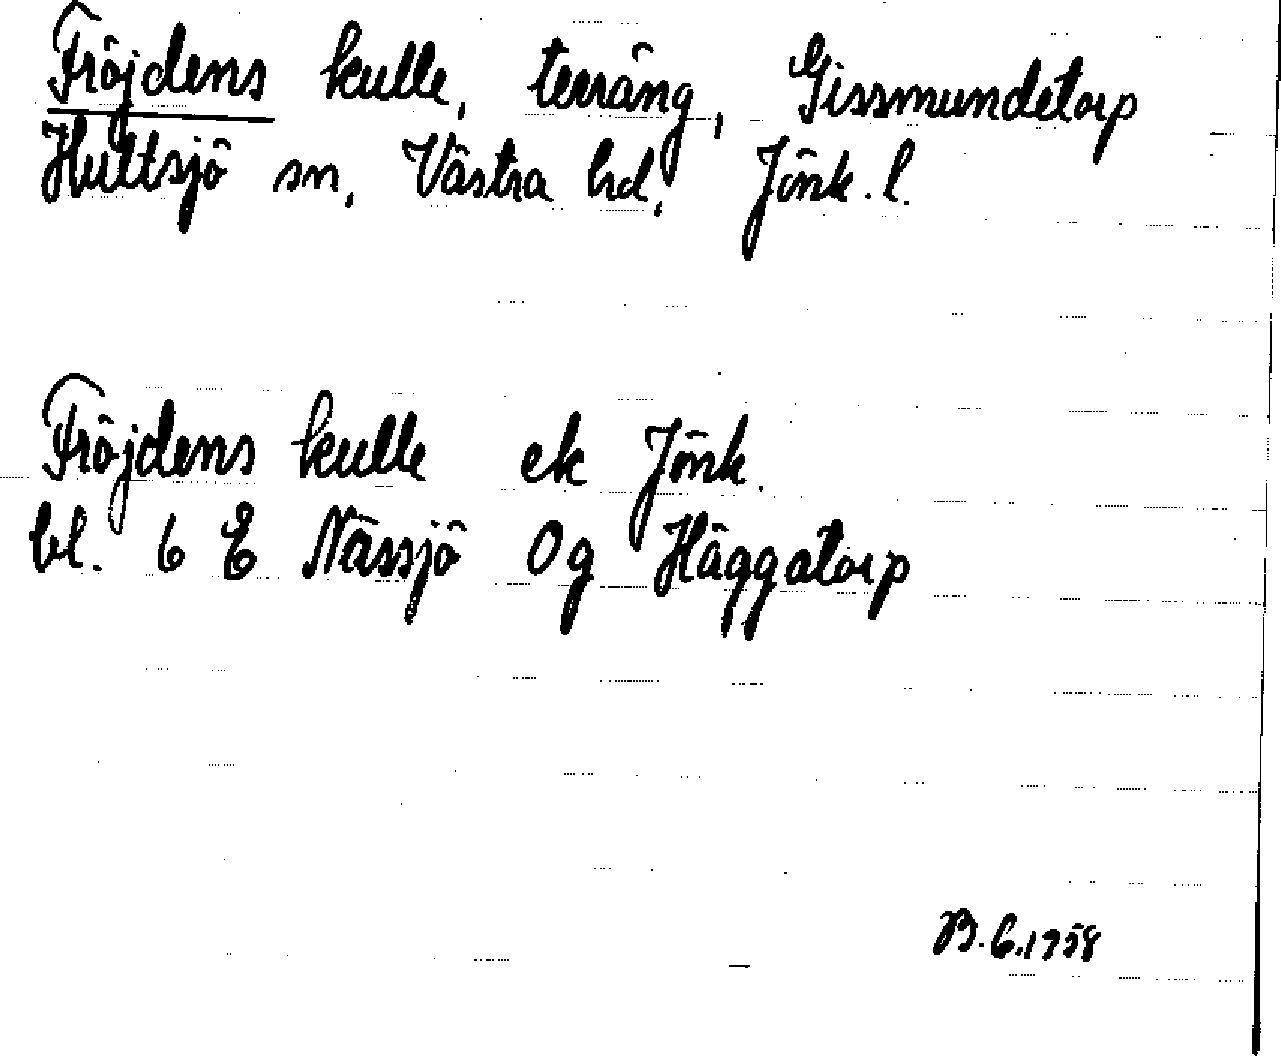 Fröjdens kulle, terräng, Gissmundetorp
Hultsjö sn, Västra hd, Jönk. l.
Fröjdens kulle ek Jönk.
bl. 6 E Nässjö Og Häggatorp
B.G.1958